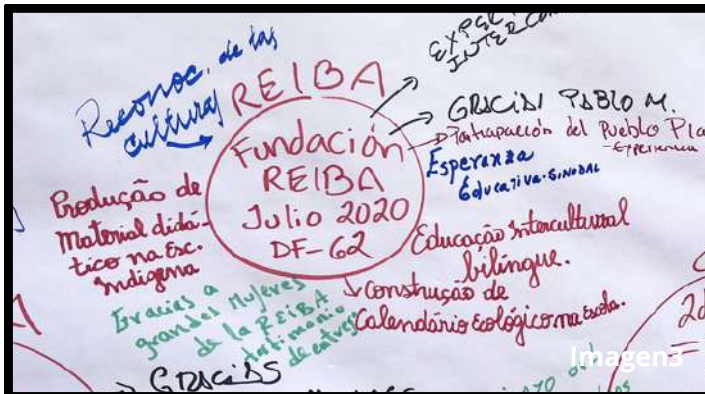 Reconoc. de las
culturas
REIBA
Fundación
REIBA
Julio 2020
DF-62
GRACIAS PABLO M.
Participación del Pueblo
-Experiencia
Esperanza
Educativa-SINODAL
Produção de
Material didá-
tico na Esc.
Indígena
Educação intercultural
bilíngue.
construção de
Calendário Ecológico na Escola.
Gracias a
grandes Mujeres
de la REIBA
testimonio
de entrega
GRACIAS
Imagen3